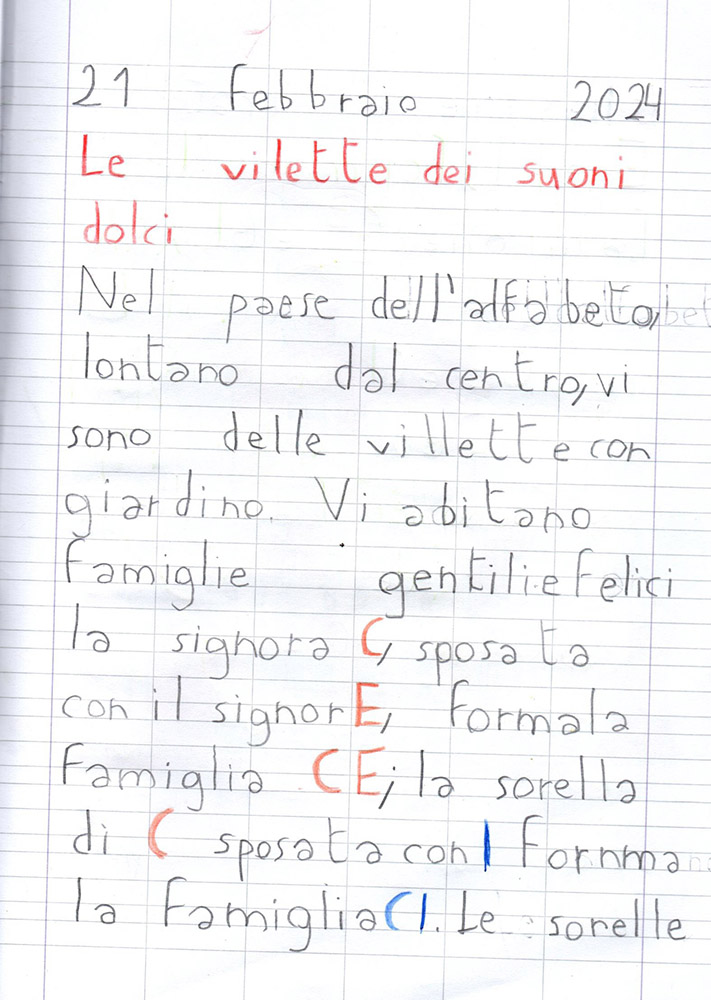 21 febbraio 2024
Le vilette dei suoni
dolci
Nel paese dell'alfabeto,
lontano dal centro, vi
sono delle villette con
giardino. Vi abitano
famiglie gentili e felici
la signora C, sposata
con il signor E, forma la
famiglia CE; la sorella
di C sposata con I fornma
la famiglia CI. Le sorelle